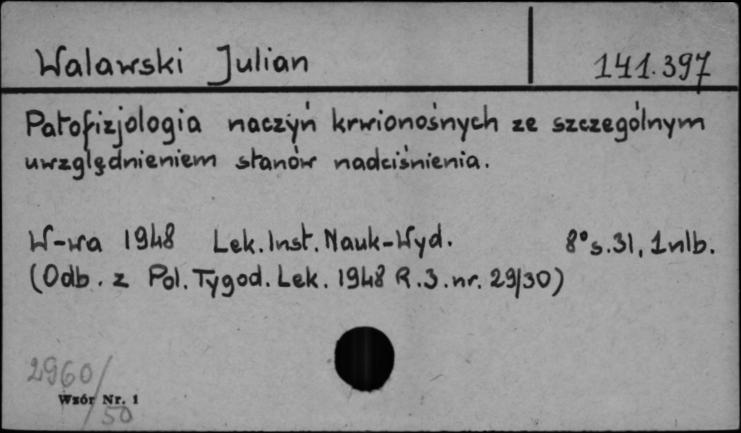 Walawski Julian 141.397
Patofizjologia naczyń krwionośnych ze szczególnym
uwzględnieniem stanów nadciśnienia.
W-wa 1948 Lek. Inst. Nauk-Wyd. 8° s. 31, 1 nlb.
(Odb. z Pol. Tygod. Lek. 1948 R. 3. nr. 29/30)
2960/
Wzór Nr. 1
50